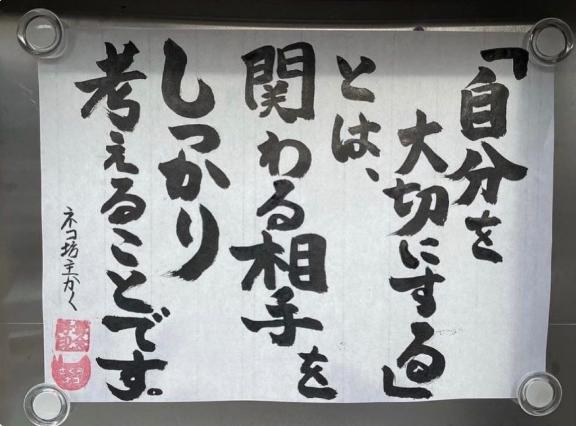 「自分を
大切にする」
とは、
関わる相手を
しっかり
考えることです。
ネコ坊主かく